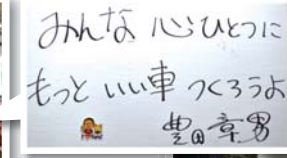 みんな 心ひとつに
もっと いい車 つくろうよ
豊田章男